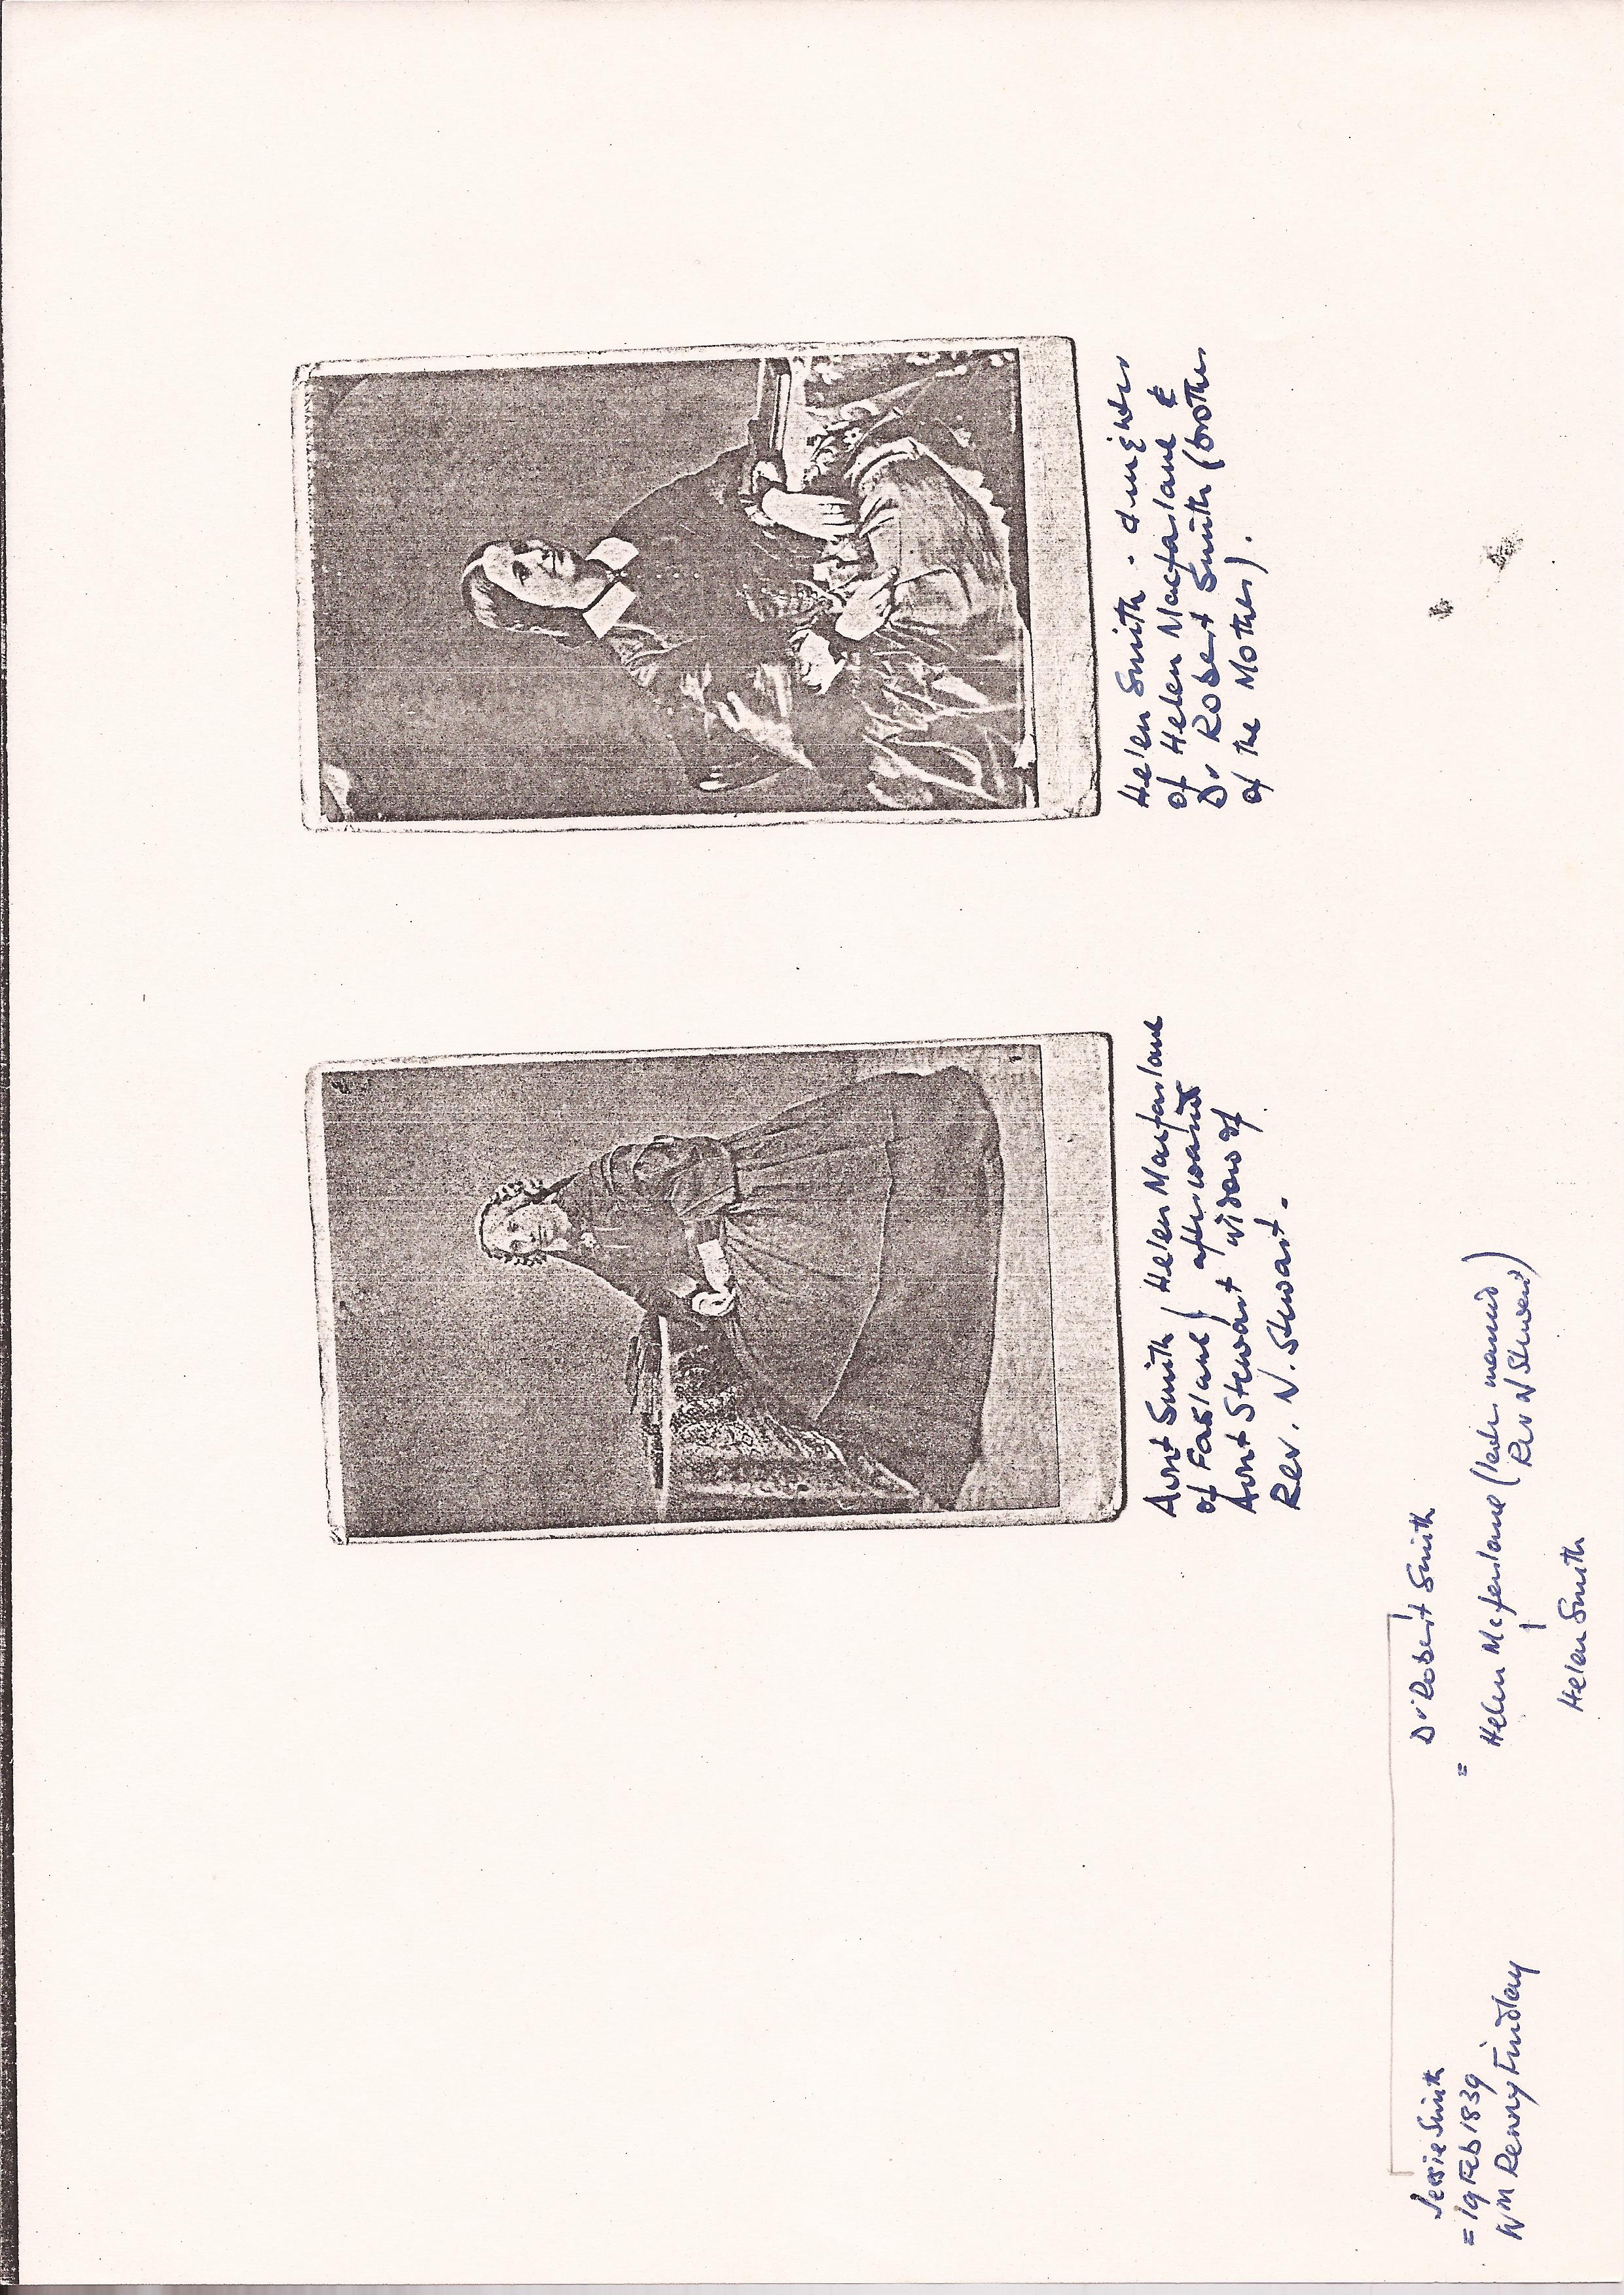 Aunt Smith / Helen Macfarlane
of Faslane / afterwards
Aunt Stewart widow of
Rev. N. Stewart.
Helen Smith - daughter
of Helen Macfarlane &
Dr Robert Smith (brother
of the Mother).
Jessie Smith
= 19 Feb 1839
Wm Renny Findlay
Dr Robert Smith
=
Helen Mcfarlane (later married
Rev N Stewart)
Helen Smith